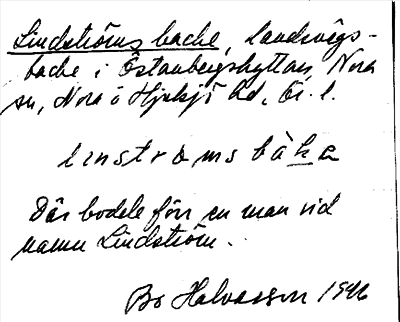 Lindströms backe, Landsvägs-
backe i Östanbergshyttan, Nora
sn, Nora o Hjulsjö hd, Ör. l.
linströms bàka
Där bodde förr en man vid
namn Lindström.
Bo Halvarsson 1946